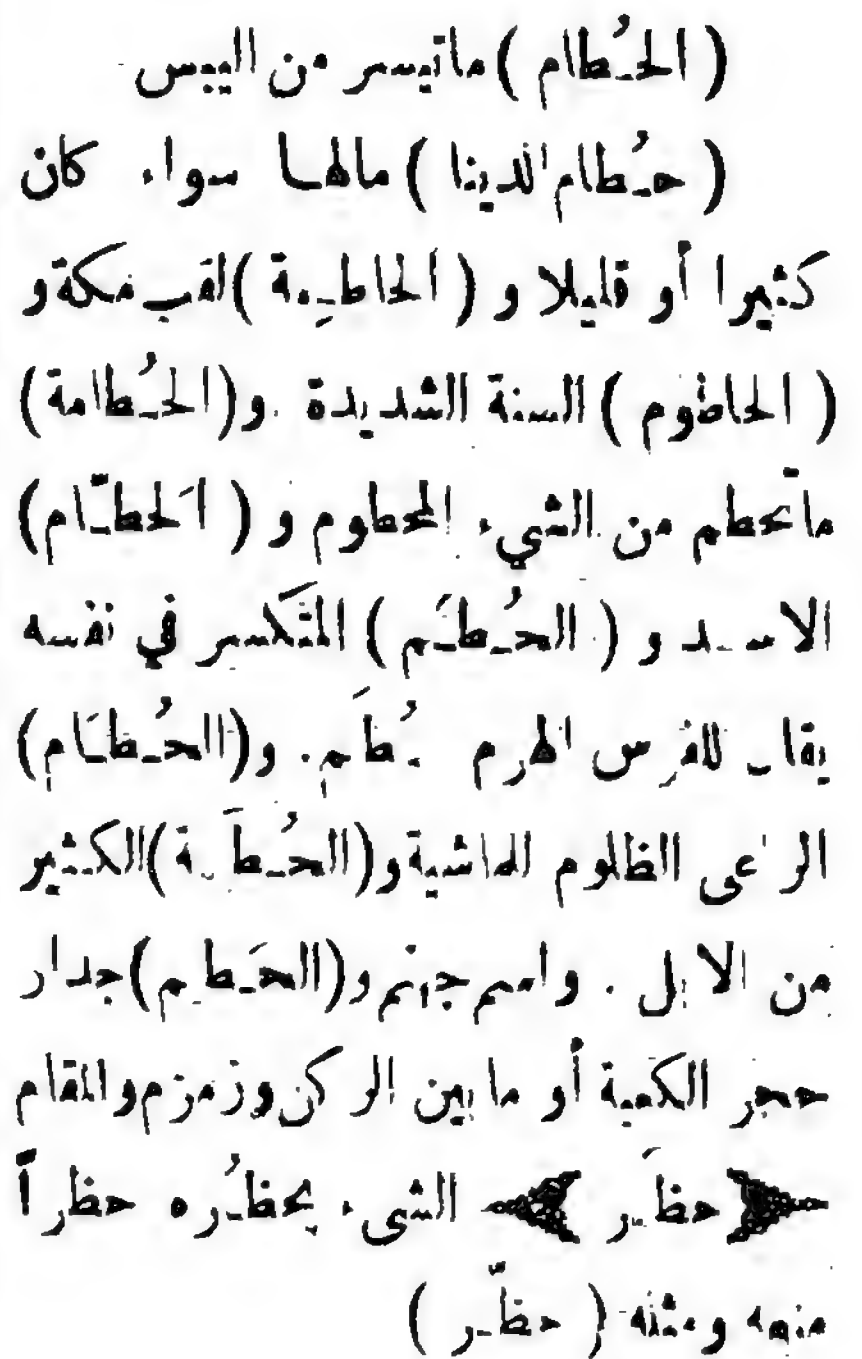 ( الحُطام ) ماتيسر من اليبس
( حُطام الدينا ) مالها سواء كان
كثيرا أو قليلا و ( الحاطِمة ) لقب مكة و
( الحاطوم ) السنة الشديدة . و ( الحُطامة )
ماتحطم من الشيء المحطوم و ( الحَطّام )
الاسد و ( الحُطَم ) المتكسر في نفسه
يقال للفرس الهرم حُطَم . و ( الحُطَام )
الراعى الظلوم للماشية و ( الحُطَمة ) الكثير
من الابل . واسم جهنم و ( الحَطيم ) جدار
حجر الكعبة أو ما بين الركن وزمزم والمقام
حظَر الشىء يحظُره حظراً
منعه ومثله ( حظّر )